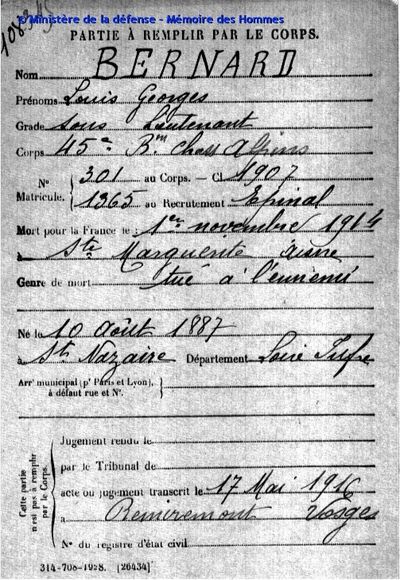 © Ministère de la défense - Mémoire des Hommes
PARTIE À REMPLIR PAR LE CORPS.
Nom BERNARD
Prénoms Louis Georges
Grade Sous Lieutenant
Corps 45e Bon chass Alpins
N° 301 au Corps. — Cl. 1907
Matricule. 1365 au Recrutement Epinal
Mort pour la France le 1er novembre 1914
à Ste Marguerite Aisne
Genre de mort tué à l'ennemi
Né le 10 août 1887
à St Nazaire Département Loire Infre
Arrt municipal (pr Paris et Lyon), à défaut rue et N°.
Cette partie n'est pas à remplir par le Corps.
Jugement rendu le
par le Tribunal de
acte ou jugement transcrit le 17 Mai 1916
à Remiremont Vosges
N° du registre d'état civil
314-708-1928. [26434]